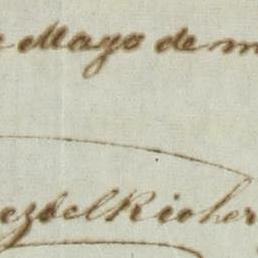 e Mayo de m
ez del Rio her